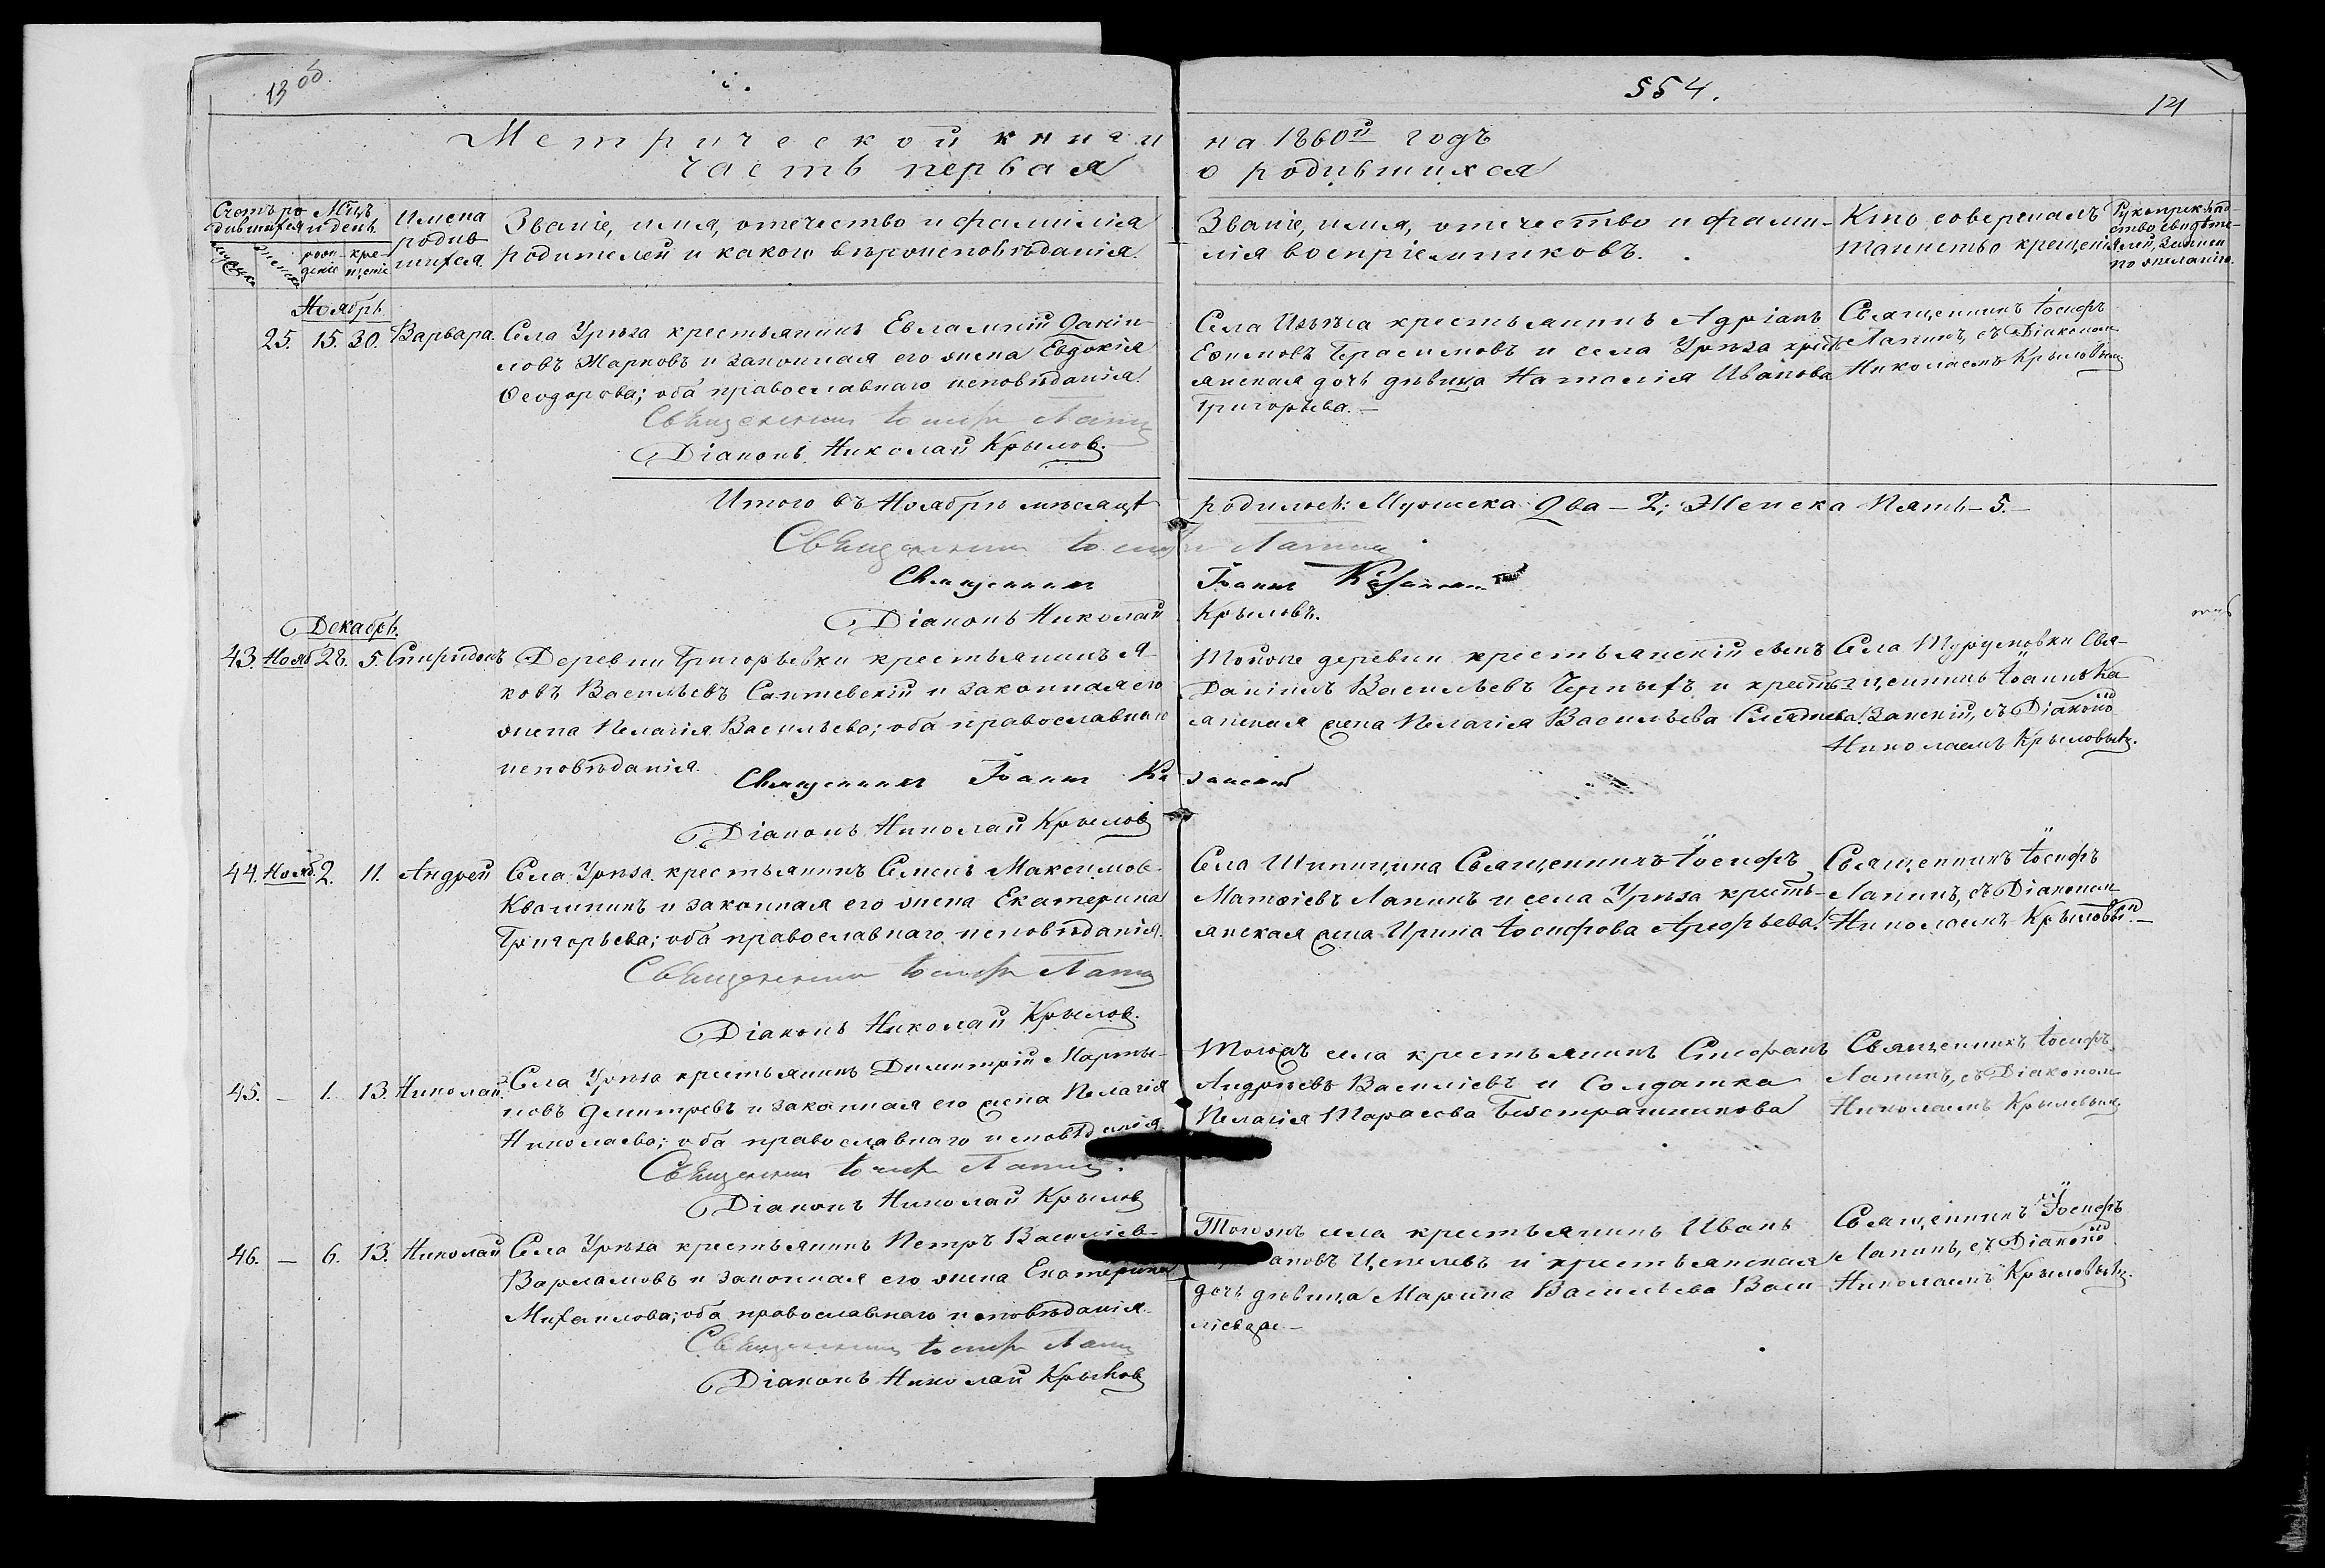 1306.
554.
121
Метрической книги на 1860й годъ
часть первая о родившихся
Счетъ родившихся
Мцъ и день.
Имена родившихся.
Званіе, имя, отечество и фамилія
родителей и какого вѣроисповѣданія.
Званіе, имя, отечество и фами-
лія воспріемниковъ.
Кто совершалъ
таинство крещенія
Рукоприклад-
ство свидѣте-
лей записи
по желанію.
мужска
женска
рож-
деніе
кре-
щеніе
Ноябрь
25. 15. 30. Варвара.
Села Урѣза крестьянинъ Евлампій Іакин-
ловъ Жарковъ и законная его жена Евдокія
Ѳеодорова; оба православнаго исповѣданія.
Священникъ Іосифъ Лапинъ
Діаконъ Николай Крыловъ.
Села крестьянинъ Адріанъ
Ефимовъ Герасимовъ и села Урѣза кресть-
янская дочь дѣвица Наталія Иванова
Григорьева.—
Священникъ Іосифъ
Лапинъ, съ Діакономъ
Николаемъ Крыловымъ
Итого въ Ноябрѣ мѣсяцѣ родилось: Мужска Два — 2; Женска Пять — 5.—
Священникъ Іосифъ Лапинъ
Священникъ Іоаннъ Казанскій
Діаконъ Николай Крыловъ.
Декабрь.
43. Нояб. 28. 5. Спиридонъ
Деревни Григорьевки крестьянинъ Я-
ковъ Васильевъ и законная его
жена Пелагія Васильева; оба православнаго
исповѣданія.
Священникъ Іоаннъ Казанскій
Діаконъ Николай Крыловъ
Тойже деревни крестьянскій сынъ
Даніилъ Васильевъ Черныхъ и кресть-
янская жена Пелагія Васильева
Села Свя-
щенникъ Іоаннъ Ка-
занскій, съ Діаконо
Николаемъ Крыловымъ.
44. Нояб. 2. 11. Андрей
Села Урѣза крестьянинъ Семенъ Максимовъ
Квашнинъ и законная его жена Екатерина
Григорьева; оба православнаго исповѣданія.
Священникъ Іосифъ Лапинъ
Діаконъ Николай Крыловъ.
Села Шипицина Священникъ Іосифъ
Матѳіевъ Лапинъ и села Урѣза кресть-
янская жена Ирина Іосифова Арефьева.
Священникъ Іосифъ
Лапинъ, съ Діакономъ
Николаемъ Крыловым.—
45. — 1. 13. Николай.
Села Урѣза крестьянинъ Димитрій Марты-
новъ Дмитревъ и законная его жена Пелагія
Николаева; оба православнаго исповѣданія.
Священникъ Іосифъ Лапинъ.
Діаконъ Николай Крыловъ
Тогожъ села крестьянинъ Стефанъ
Андреевъ Василіевъ и Солдатка
Пелагія Тарасова
Священникъ Іосифъ
Лапинъ, съ Діакономъ
Николаемъ Крыловымъ
46. — 6. 13. Николай
Села Урѣза крестьянинъ Петръ Василіевъ
Варламовъ и законная его жена Екатерина
Михаилова; оба православнаго исповѣданія.
Священникъ Іосифъ Лапинъ
Діаконъ Николай Крыловъ
Тогожъ села крестьянинъ Иванъ
Цепелевъ и крестьянская
дочь дѣвица Марина Васильева Васи-
ліева.—
Священникъ Іосифъ
Лапинъ, съ Діаконо
Николаемъ Крыловымъ.